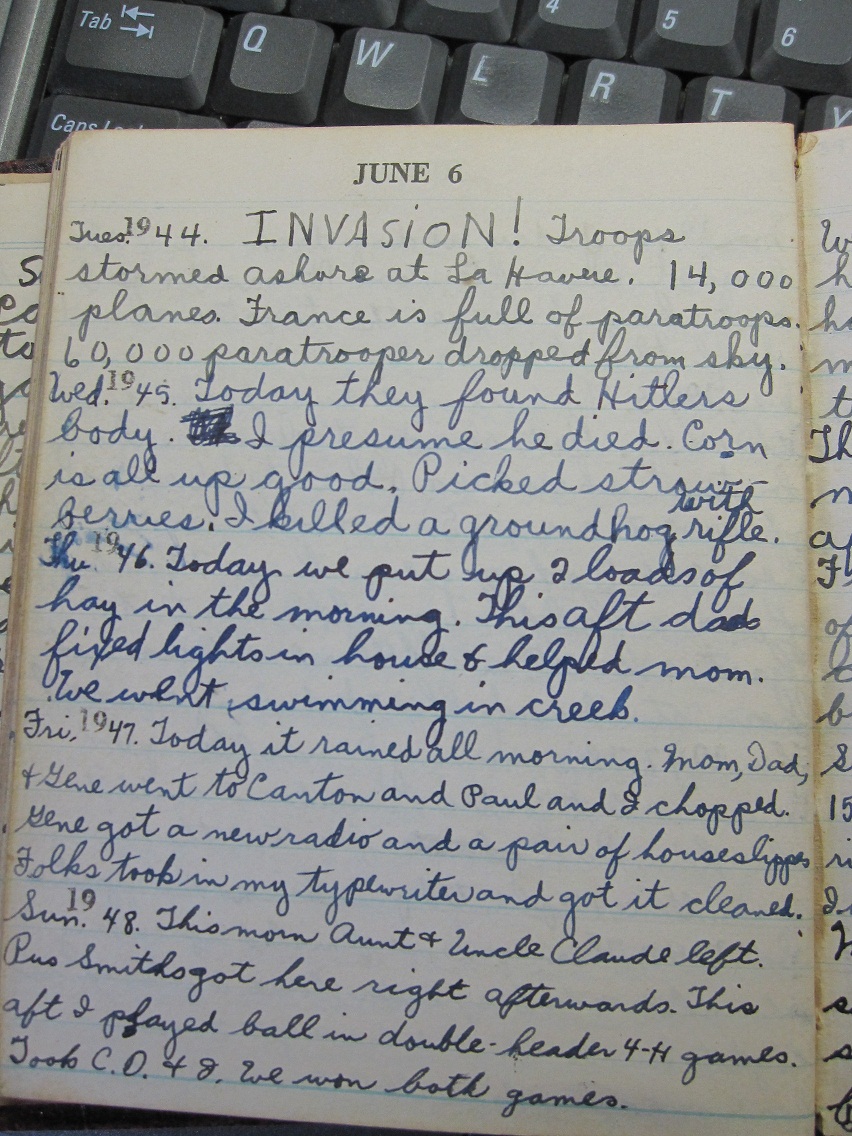 Tab
Q W E R T Y
4 5 6
Caps Lock
JUNE 6
Tues. 1944. INVASION! Troops
stormed ashore at La Havere. 14,000
planes. France is full of paratroops.
60,000 paratrooper dropped from sky.
Wed. 1945. Today they found Hitlers
body. I presume he died. Corn
is all up good. Picked straw-
berries. I killed a groundhog with rifle.
Thu. 1946. Today we put up 2 loads of
hay in the morning. This aft dad
fixed lights in house & helped mom.
We went swimming in creek.
Fri, 1947. Today it rained all morning. Mom, Dad,
& Gene went to Canton and Paul and I chopped.
Gene got a new radio and a pair of houseslippes
Folks took in my typewriter and got it cleaned.
Sun. 1948. This morn Aunt & Uncle Claude left.
Rus Smiths got here right afterwards. This
aft I played ball in double-header 4-H games.
Took C.O. & J. We won both games.